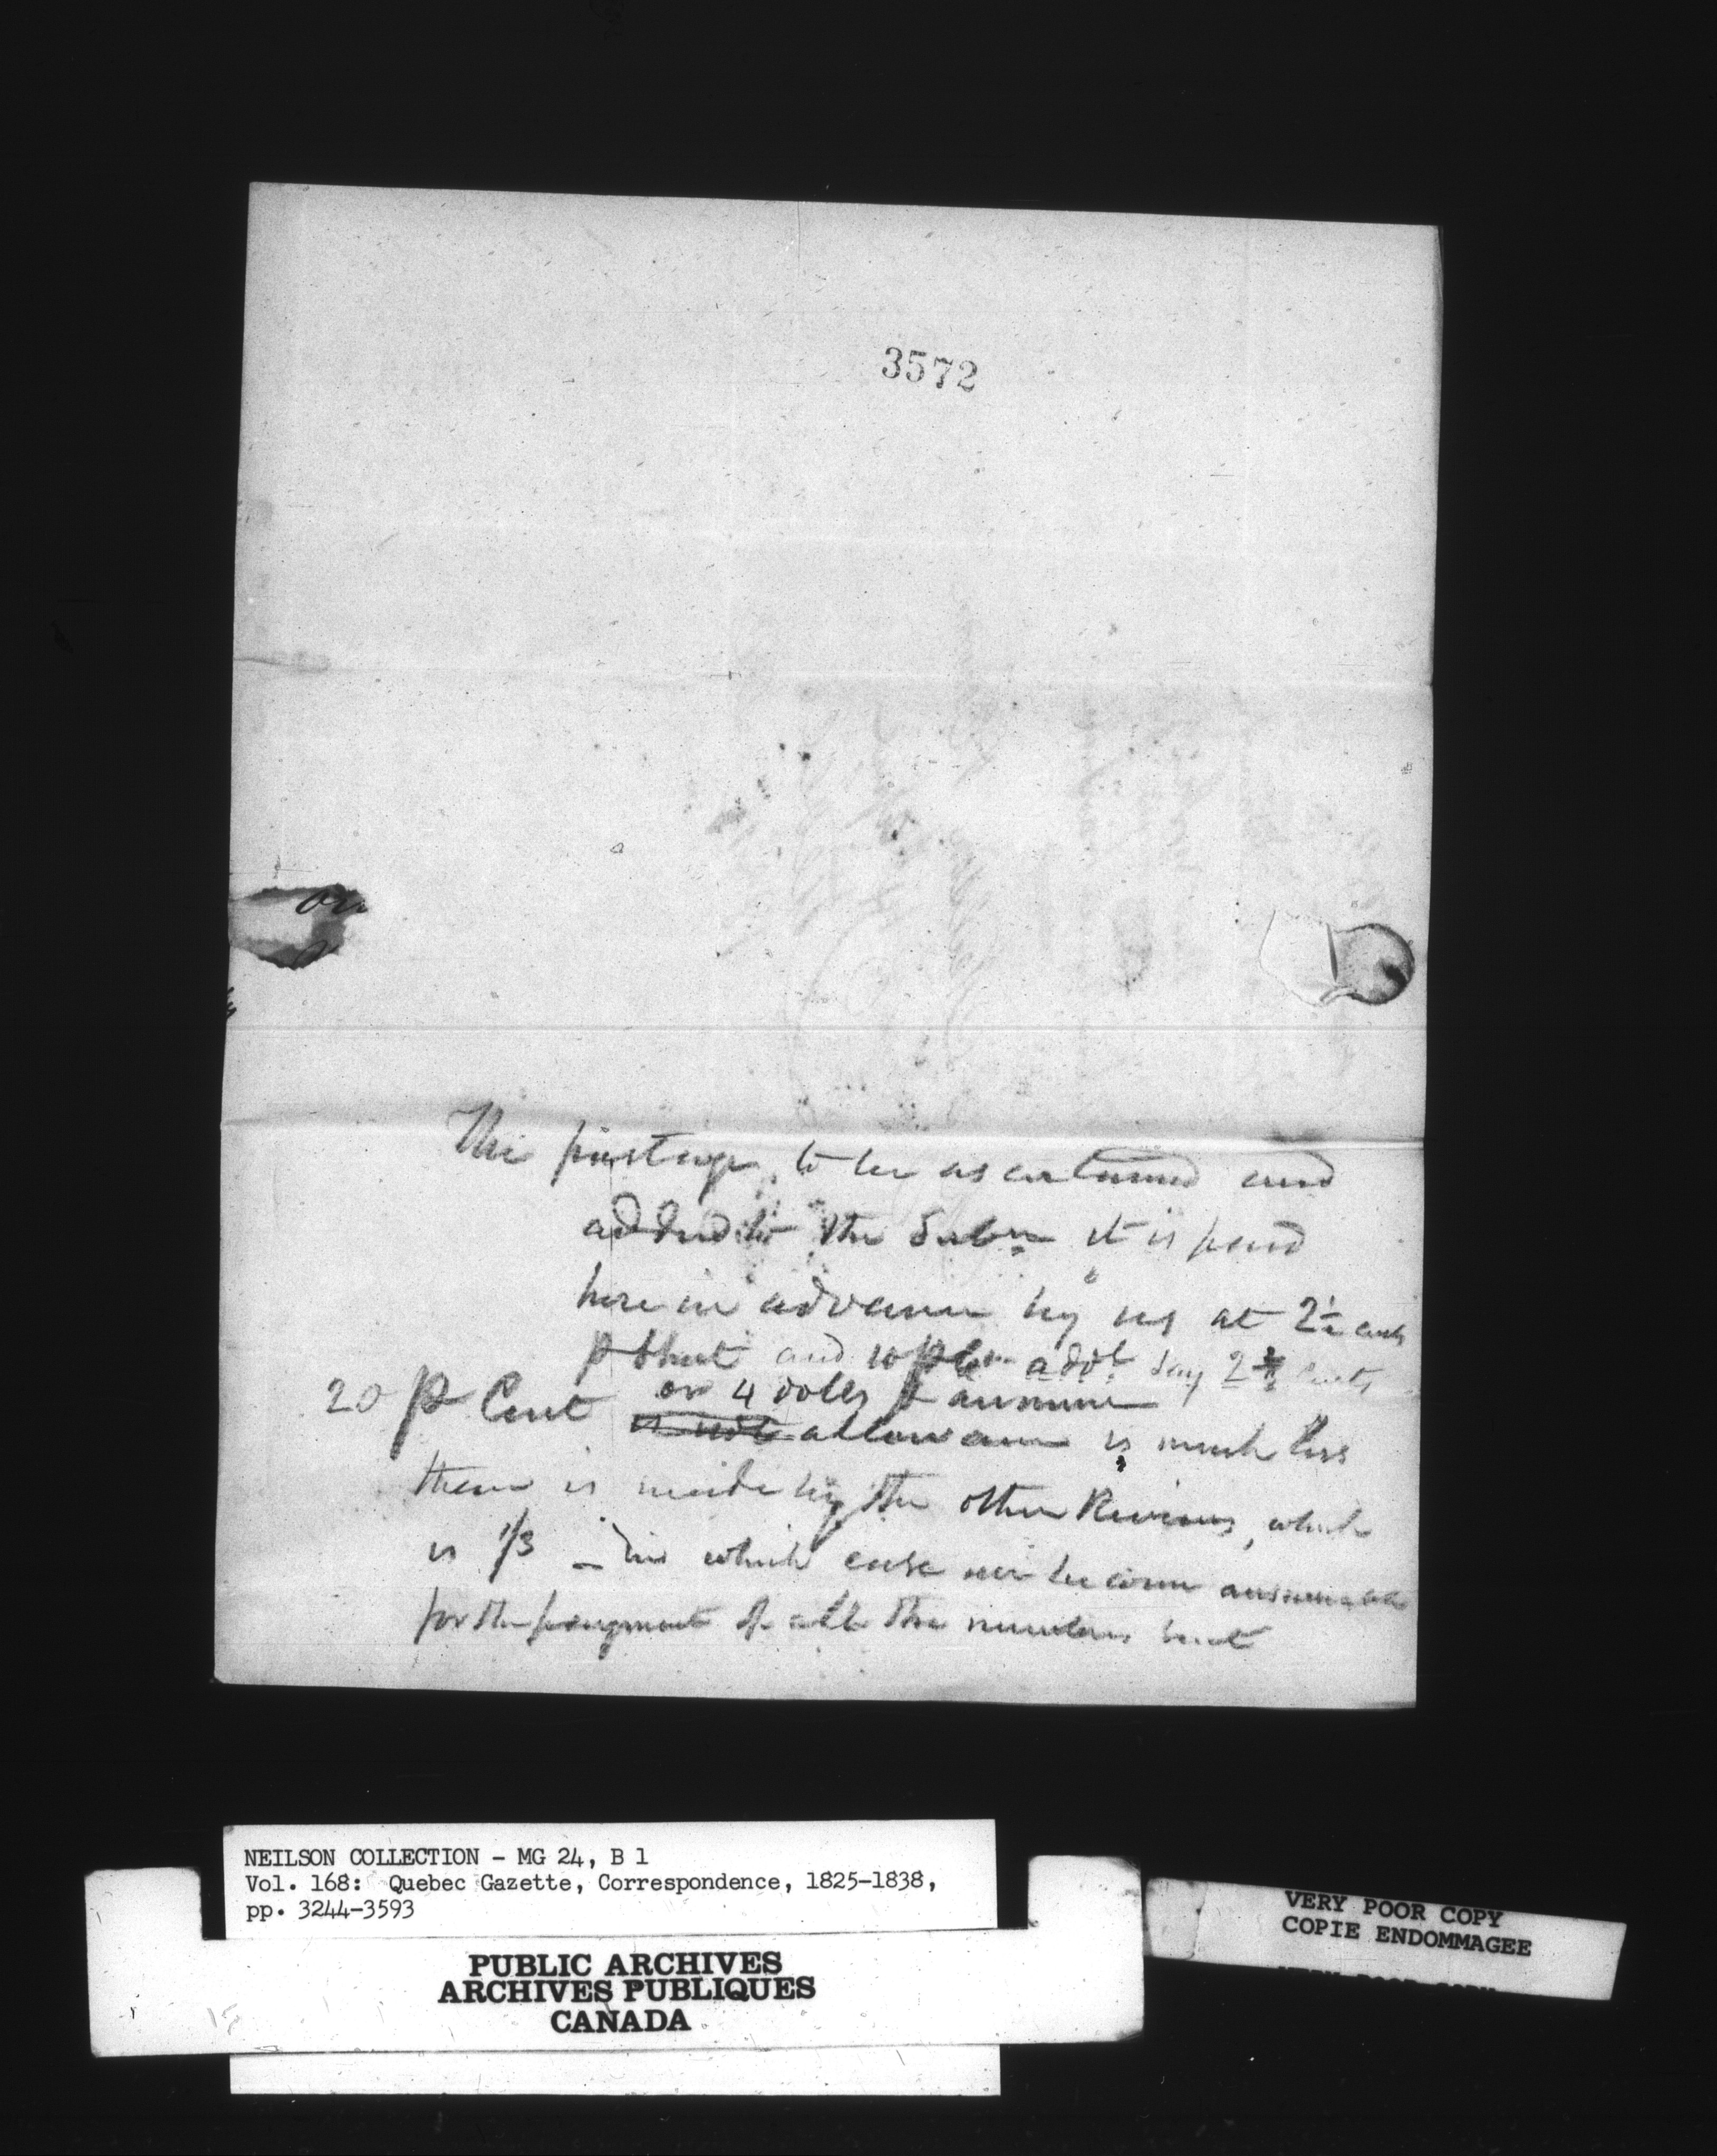 3572
The postage, to be ascertained and
added to the Subn it is paid
here in advance by us at 2½ cents
P Sheet and 10 P Ct addl Say 2¾ Cents
or 4 dolls P annum
20 P Cent is not allowance is much less
than is made by the other Reviews, which
is 1/3 – in which case we become answerable
for the payment of all the numbers sent
NEILSON COLLECTION - MG 24, B 1
Vol. 168: Quebec Gazette, Correspondence, 1825-1838,
pp. 3244-3593
PUBLIC ARCHIVES
ARCHIVES PUBLIQUES
CANADA
VERY POOR COPY
COPIE ENDOMMAGEE